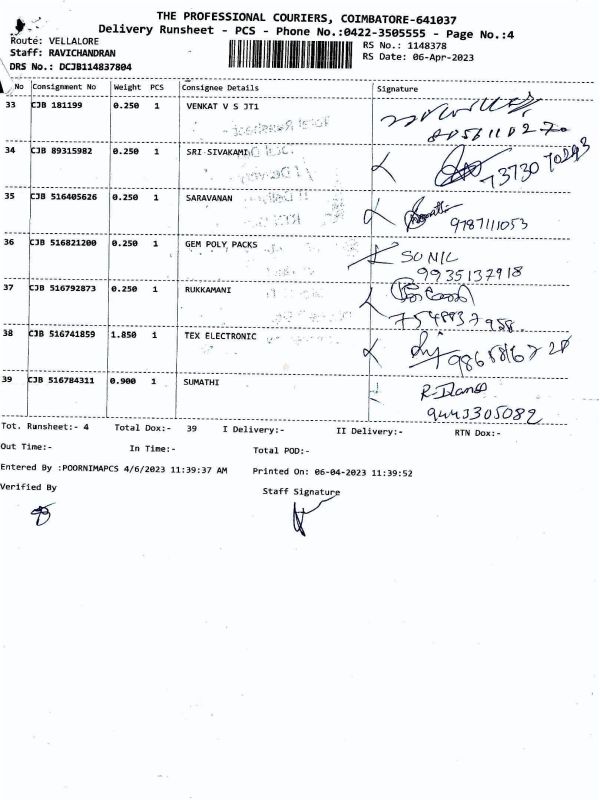 THE PROFESSIONAL COURIERS, COIMBATORE-641037
Delivery Runsheet - PCS - Phone No.:0422-3505555 - Page No.:4
Route: VELLALORE
RS No.: 1148378
Staff: RAVICHANDRAN
RS Date: 06-Apr-2023
DRS No.: DCJB114837804
No Consignment No Weight PCS Consignee Details Signature
33 CJB 181199 0.250 1 VENKAT V S JT1
34 CJB 89315982 0.250 1 SRI SIVAKAMI
35 CJB 516405626 0.250 1 SARAVANAN
9787111053
36 CJB 516821200 0.250 1 GEM POLY PACKS SUNIL
9935137918
37 CJB 516792873 0.250 1 RUKKAMANI
38 CJB 516741859 1.850 1 TEX ELECTRONIC
39 CJB 516784311 0.900 1 SUMATHI
9443305082
Tot. Runsheet:- 4 Total Dox:- 39 I Delivery:- II Delivery:- RTN Dox:-
Out Time:- In Time:- Total POD:-
Entered By :POORNIMAPCS 4/6/2023 11:39:37 AM Printed On: 06-04-2023 11:39:52
Verified By Staff Signature